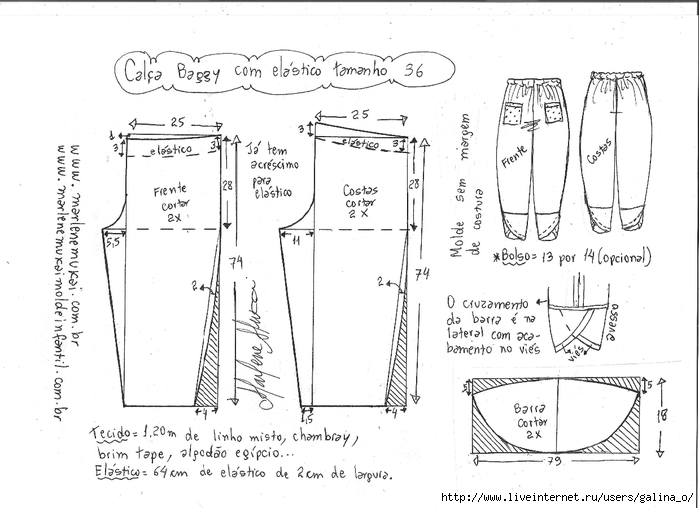 Calça Baggy com elástico tamanho 36
www.marlenemukai.com.br
www.marlenemukaimoldeinfantil.com.br
25
1
3
3
elástico
Frente
cortar
2x
28
74
5,5
2
4
Já tem
acréscimo
para
elástico
25
3
3
elástico
Costas
cortar
2x
28
74
11
2
1,5
4
Marlene Mukai
Molde sem margem
de costura
Frente
Costas
*Bolso = 13 por 14 (opcional)
O cruzamento
da barra é na
lateral com aca-
bamento no viés
avesso
viés
5
5
Barra
cortar
2x
18
79
Tecido = 1.20m de linho misto, chambray,
brim tape, algodão egípcio...
Elástico = 64cm de elástico de 2cm de largura.
http://www.liveinternet.ru/users/galina_o/